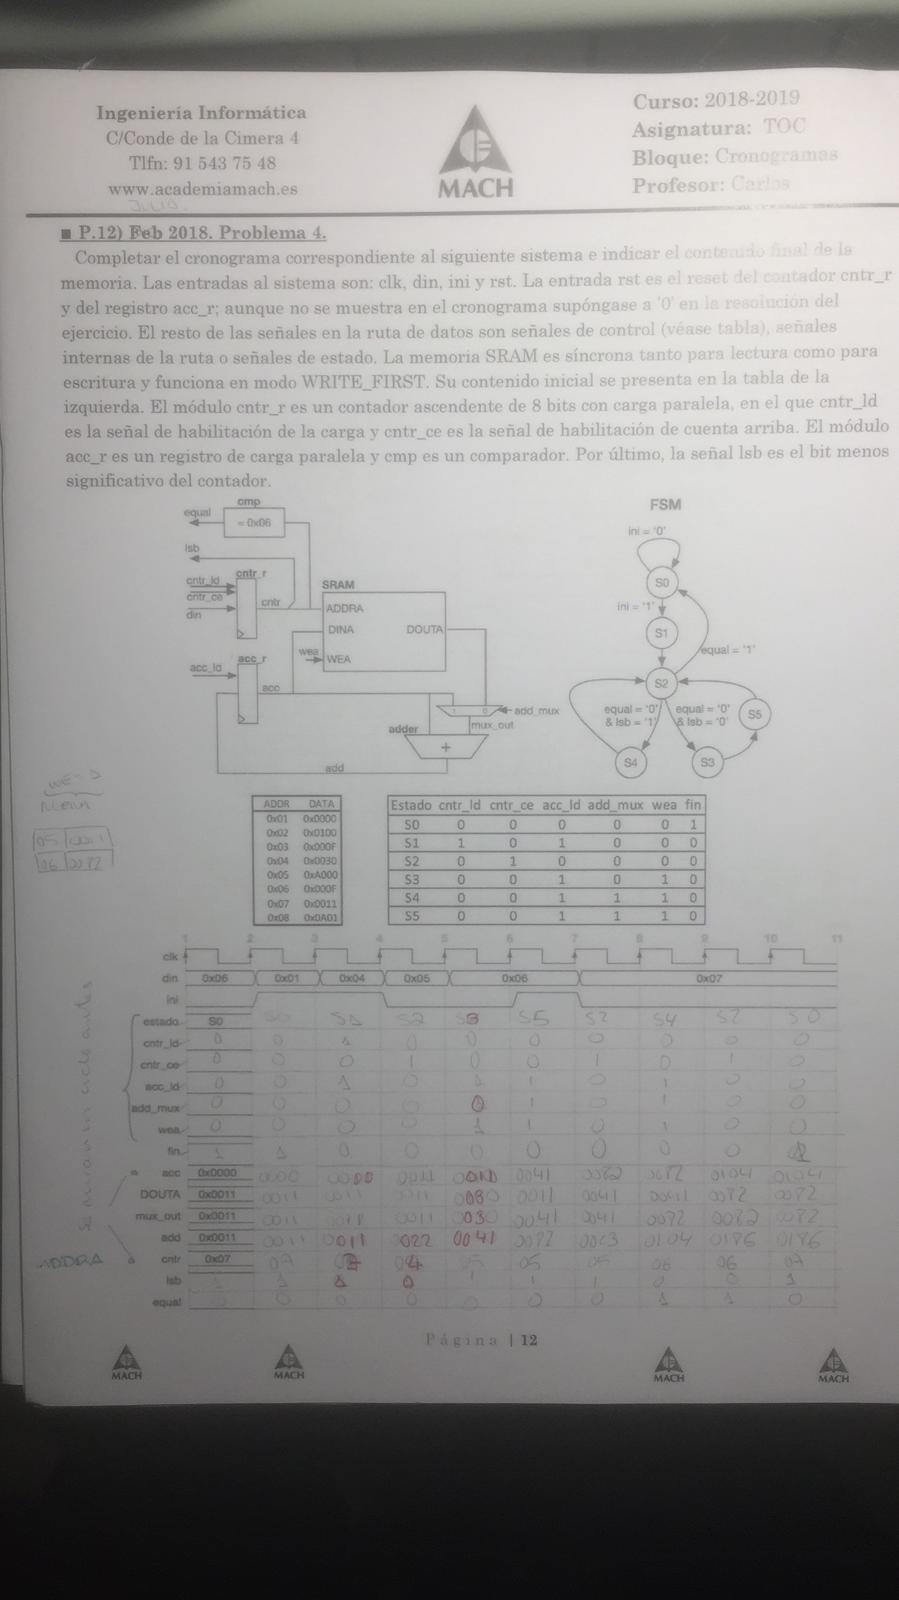 Ingeniería Informática
C/Conde de la Cimera 4
Tlfn: 91 543 75 48
www.academiamach.es
JULIO.
MACH
Curso: 2018-2019
Asignatura: TOC
Bloque: Cronogramas
Profesor: Carlos
■ P.12) Feb 2018. Problema 4.
Completar el cronograma correspondiente al siguiente sistema e indicar el contenido final de la
memoria. Las entradas al sistema son: clk, din, ini y rst. La entrada rst es el reset del contador cntr_r
y del registro acc_r; aunque no se muestra en el cronograma supóngase a '0' en la resolución del
ejercicio. El resto de las señales en la ruta de datos son señales de control (véase tabla), señales
internas de la ruta o señales de estado. La memoria SRAM es síncrona tanto para lectura como para
escritura y funciona en modo WRITE_FIRST. Su contenido inicial se presenta en la tabla de la
izquierda. El módulo cntr_r es un contador ascendente de 8 bits con carga paralela, en el que cntr_ld
es la señal de habilitación de la carga y cntr_ce es la señal de habilitación de cuenta arriba. El módulo
acc_r es un registro de carga paralela y cmp es un comparador. Por último, la señal lsb es el bit menos
significativo del contador.
cmp
equal
= 0x06
lsb
cntr_ld
cntr_ce
din
cntr_r
cntr
SRAM
ADDRA
DINA
DOUTA
wea
WEA
acc_ld
acc_r
acc
1 0
add_mux
mux_out
adder
+
add
FSM
ini = '0'
S0
ini = '1'
S1
equal = '1'
S2
equal = '0'
& lsb = '1'
equal = '0'
& lsb = '0'
S5
S4
S3
ADDR DATA
0x01 0x0000
0x02 0x0100
0x03 0x000F
0x04 0x0030
0x05 0xA000
0x06 0x000F
0x07 0x0011
0x08 0x0A01
Estado cntr_ld cntr_ce acc_ld add_mux wea fin
S0 0 0 0 0 0 1
S1 1 0 1 0 0 0
S2 0 1 0 0 0 0
S3 0 0 1 0 1 0
S4 0 0 1 1 1 0
S5 0 0 1 1 1 0
1 2 3 4 5 6 7 8 9 10 11
clk
din 0x06 0x01 0x04 0x05 0x06 0x07
ini
estado S0 S0 S1 S2 S3 S5 S2 S4 S2 S0
cntr_ld 0 0 1 0 0 0 0 0 0 0
cntr_ce 0 0 0 1 0 0 1 0 1 0
acc_ld 0 0 1 0 1 1 0 1 0 0
add_mux 0 0 0 0 0 1 0 1 0 0
wea 0 0 0 0 1 1 0 1 0 0
fin 1 1 0 0 0 0 0 0 0 1
acc 0x0000 0000 0000 0011 0011 0041 0082 0082 0104 0104
DOUTA 0x0011 0011 0011 0011 0030 0011 0041 0041 0082 0082
mux_out 0x0011 0011 0011 0011 030 0041 0041 0082 0082 0082
add 0x0011 0011 0011 022 0041 0082 00C3 0104 0186 0186
ADDRA
cntr 0x07 07 07 04 05 05 05 06 06 07
lsb 1 1 1 0 1 1 1 0 0 1
equal 0 0 0 0 0 0 0 1 1 0
Página | 12
MACH
MACH
MACH
MACH